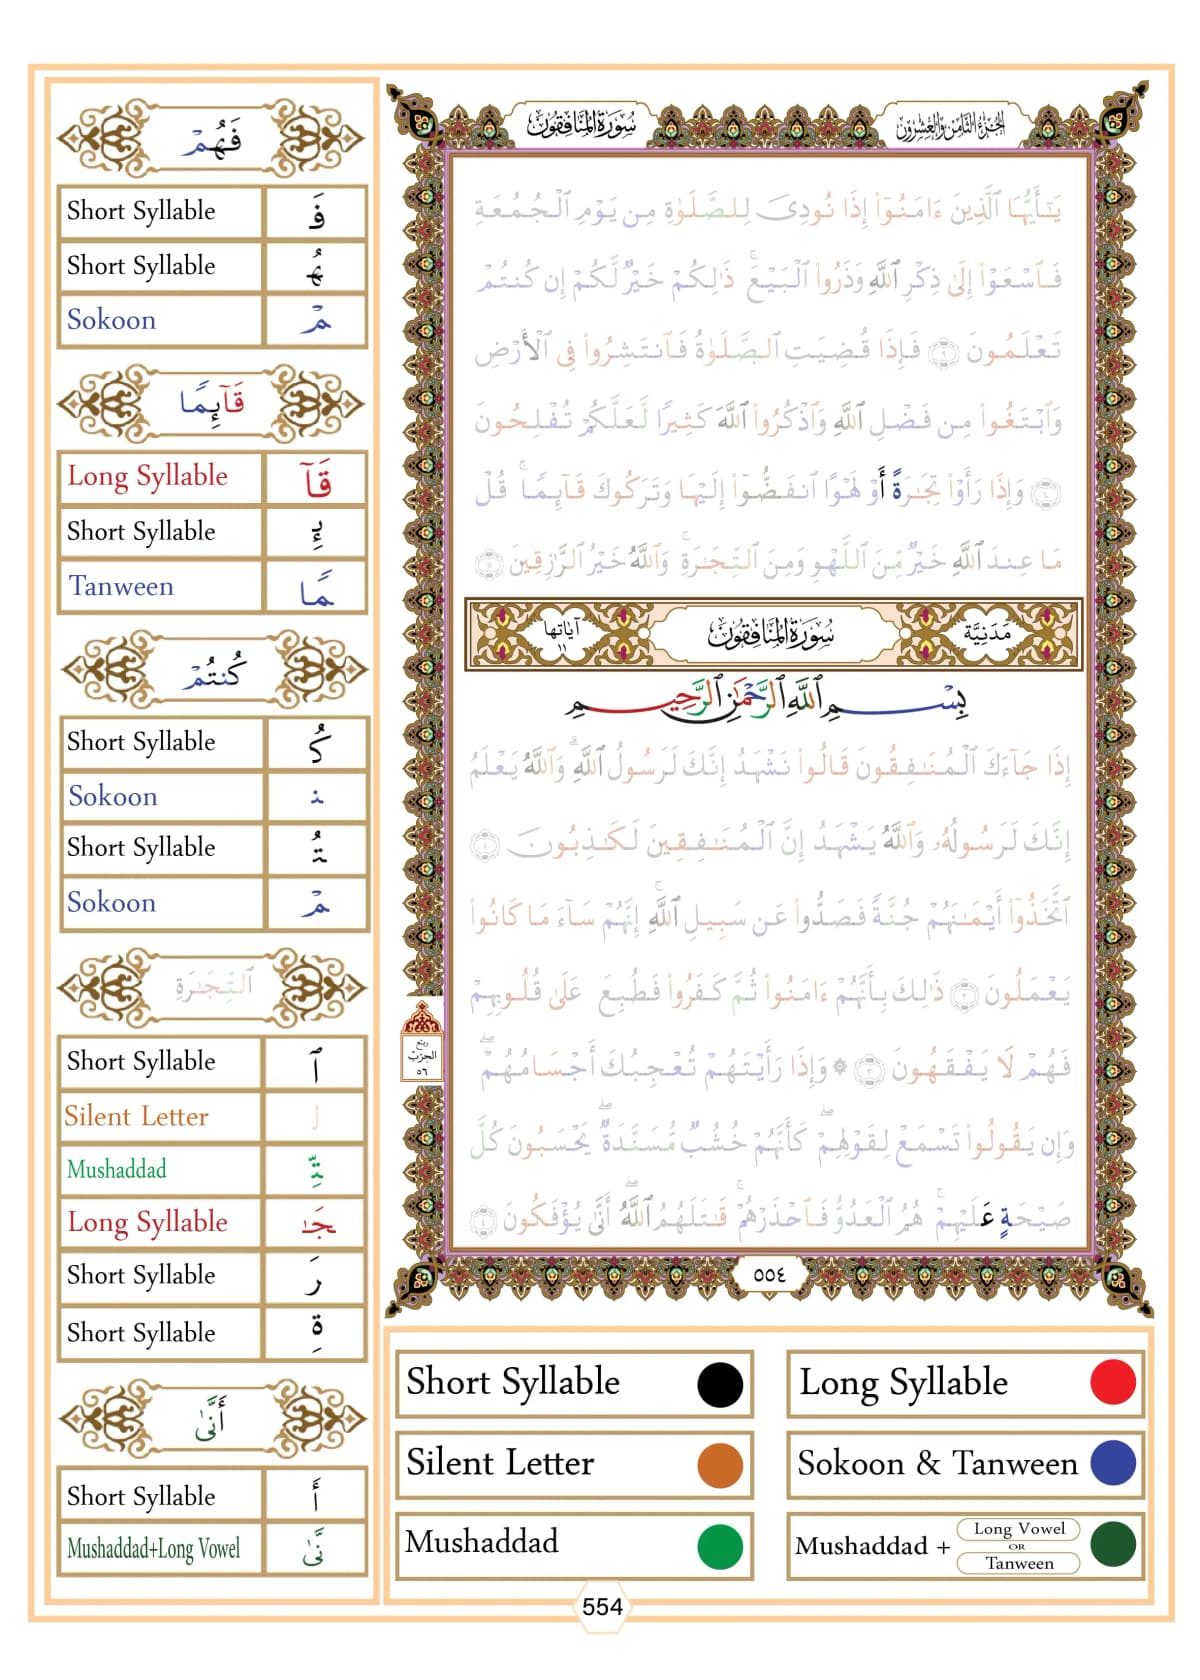 سُورَةُ المُنَافِقُون
الجُزءُ الثَّامِنُ وَالعِشْرُون
يَـٰٓأَيُّهَا ٱلَّذِينَ ءَامَنُوٓا۟ إِذَا نُودِىَ لِلصَّلَوٰةِ مِن يَوْمِ ٱلْجُمُعَةِ
فَٱسْعَوْا۟ إِلَىٰ ذِكْرِ ٱللَّهِ وَذَرُوا۟ ٱلْبَيْعَ ۚ ذَٰلِكُمْ خَيْرٌ لَّكُمْ إِن كُنتُمْ
تَعْلَمُونَ ٩ فَإِذَا قُضِيَتِ ٱلصَّلَوٰةُ فَٱنتَشِرُوا۟ فِى ٱلْأَرْضِ
وَٱبْتَغُوا۟ مِن فَضْلِ ٱللَّهِ وَٱذْكُرُوا۟ ٱللَّهَ كَثِيرًا لَّعَلَّكُمْ تُفْلِحُونَ
١٠ وَإِذَا رَأَوْا۟ تِجَـٰرَةً أَوْ لَهْوًا ٱنفَضُّوٓا۟ إِلَيْهَا وَتَرَكُوكَ قَآئِمًا ۚ قُلْ
مَا عِندَ ٱللَّهِ خَيْرٌ مِّنَ ٱللَّهْوِ وَمِنَ ٱلتِّجَـٰرَةِ ۚ وَٱللَّهُ خَيْرُ ٱلرَّٰزِقِينَ ١١
مَدَنِيَّة سُورَةُ المُنَافِقُون آياتها ١١
بِسْمِ ٱللَّهِ ٱلرَّحْمَـٰنِ ٱلرَّحِيمِ
إِذَا جَآءَكَ ٱلْمُنَـٰفِقُونَ قَالُوا۟ نَشْهَدُ إِنَّكَ لَرَسُولُ ٱللَّهِ ۗ وَٱللَّهُ يَعْلَمُ
إِنَّكَ لَرَسُولُهُۥ وَٱللَّهُ يَشْهَدُ إِنَّ ٱلْمُنَـٰفِقِينَ لَكَـٰذِبُونَ ١
ٱتَّخَذُوٓا۟ أَيْمَـٰنَهُمْ جُنَّةً فَصَدُّوا۟ عَن سَبِيلِ ٱللَّهِ ۚ إِنَّهُمْ سَآءَ مَا كَانُوا۟
يَعْمَلُونَ ٢ ذَٰلِكَ بِأَنَّهُمْ ءَامَنُوا۟ ثُمَّ كَفَرُوا۟ فَطُبِعَ عَلَىٰ قُلُوبِهِمْ
فَهُمْ لَا يَفْقَهُونَ ٣ ۞ وَإِذَا رَأَيْتَهُمْ تُعْجِبُكَ أَجْسَامُهُمْ ۖ
وَإِن يَقُولُوا۟ تَسْمَعْ لِقَوْلِهِمْ ۖ كَأَنَّهُمْ خُشُبٌ مُّسَنَّدَةٌ ۖ يَحْسَبُونَ كُلَّ
صَيْحَةٍ عَلَيْهِمْ ۚ هُمُ ٱلْعَدُوُّ فَٱحْذَرْهُمْ ۚ قَـٰتَلَهُمُ ٱللَّهُ ۖ أَنَّىٰ يُؤْفَكُونَ ٤
ربع
الحزب
٥٦
٥٥٤
فَهُمْ
Short Syllable فَ
Short Syllable هُ
Sokoon مْ
قَآئِمًا
Long Syllable قَآ
Short Syllable ئِ
Tanween مًا
كُنتُمْ
Short Syllable كُ
Sokoon ن
Short Syllable تُ
Sokoon مْ
ٱلتِّجَـٰرَةِ
Short Syllable ٱ
Silent Letter ل
Mushaddad تِّ
Long Syllable جَـٰ
Short Syllable رَ
Short Syllable ةِ
أَنَّىٰ
Short Syllable أَ
Mushaddad+Long Vowel نَّىٰ
Short Syllable
Long Syllable
Silent Letter
Sokoon & Tanween
Mushaddad
Mushaddad + Long Vowel OR Tanween
554